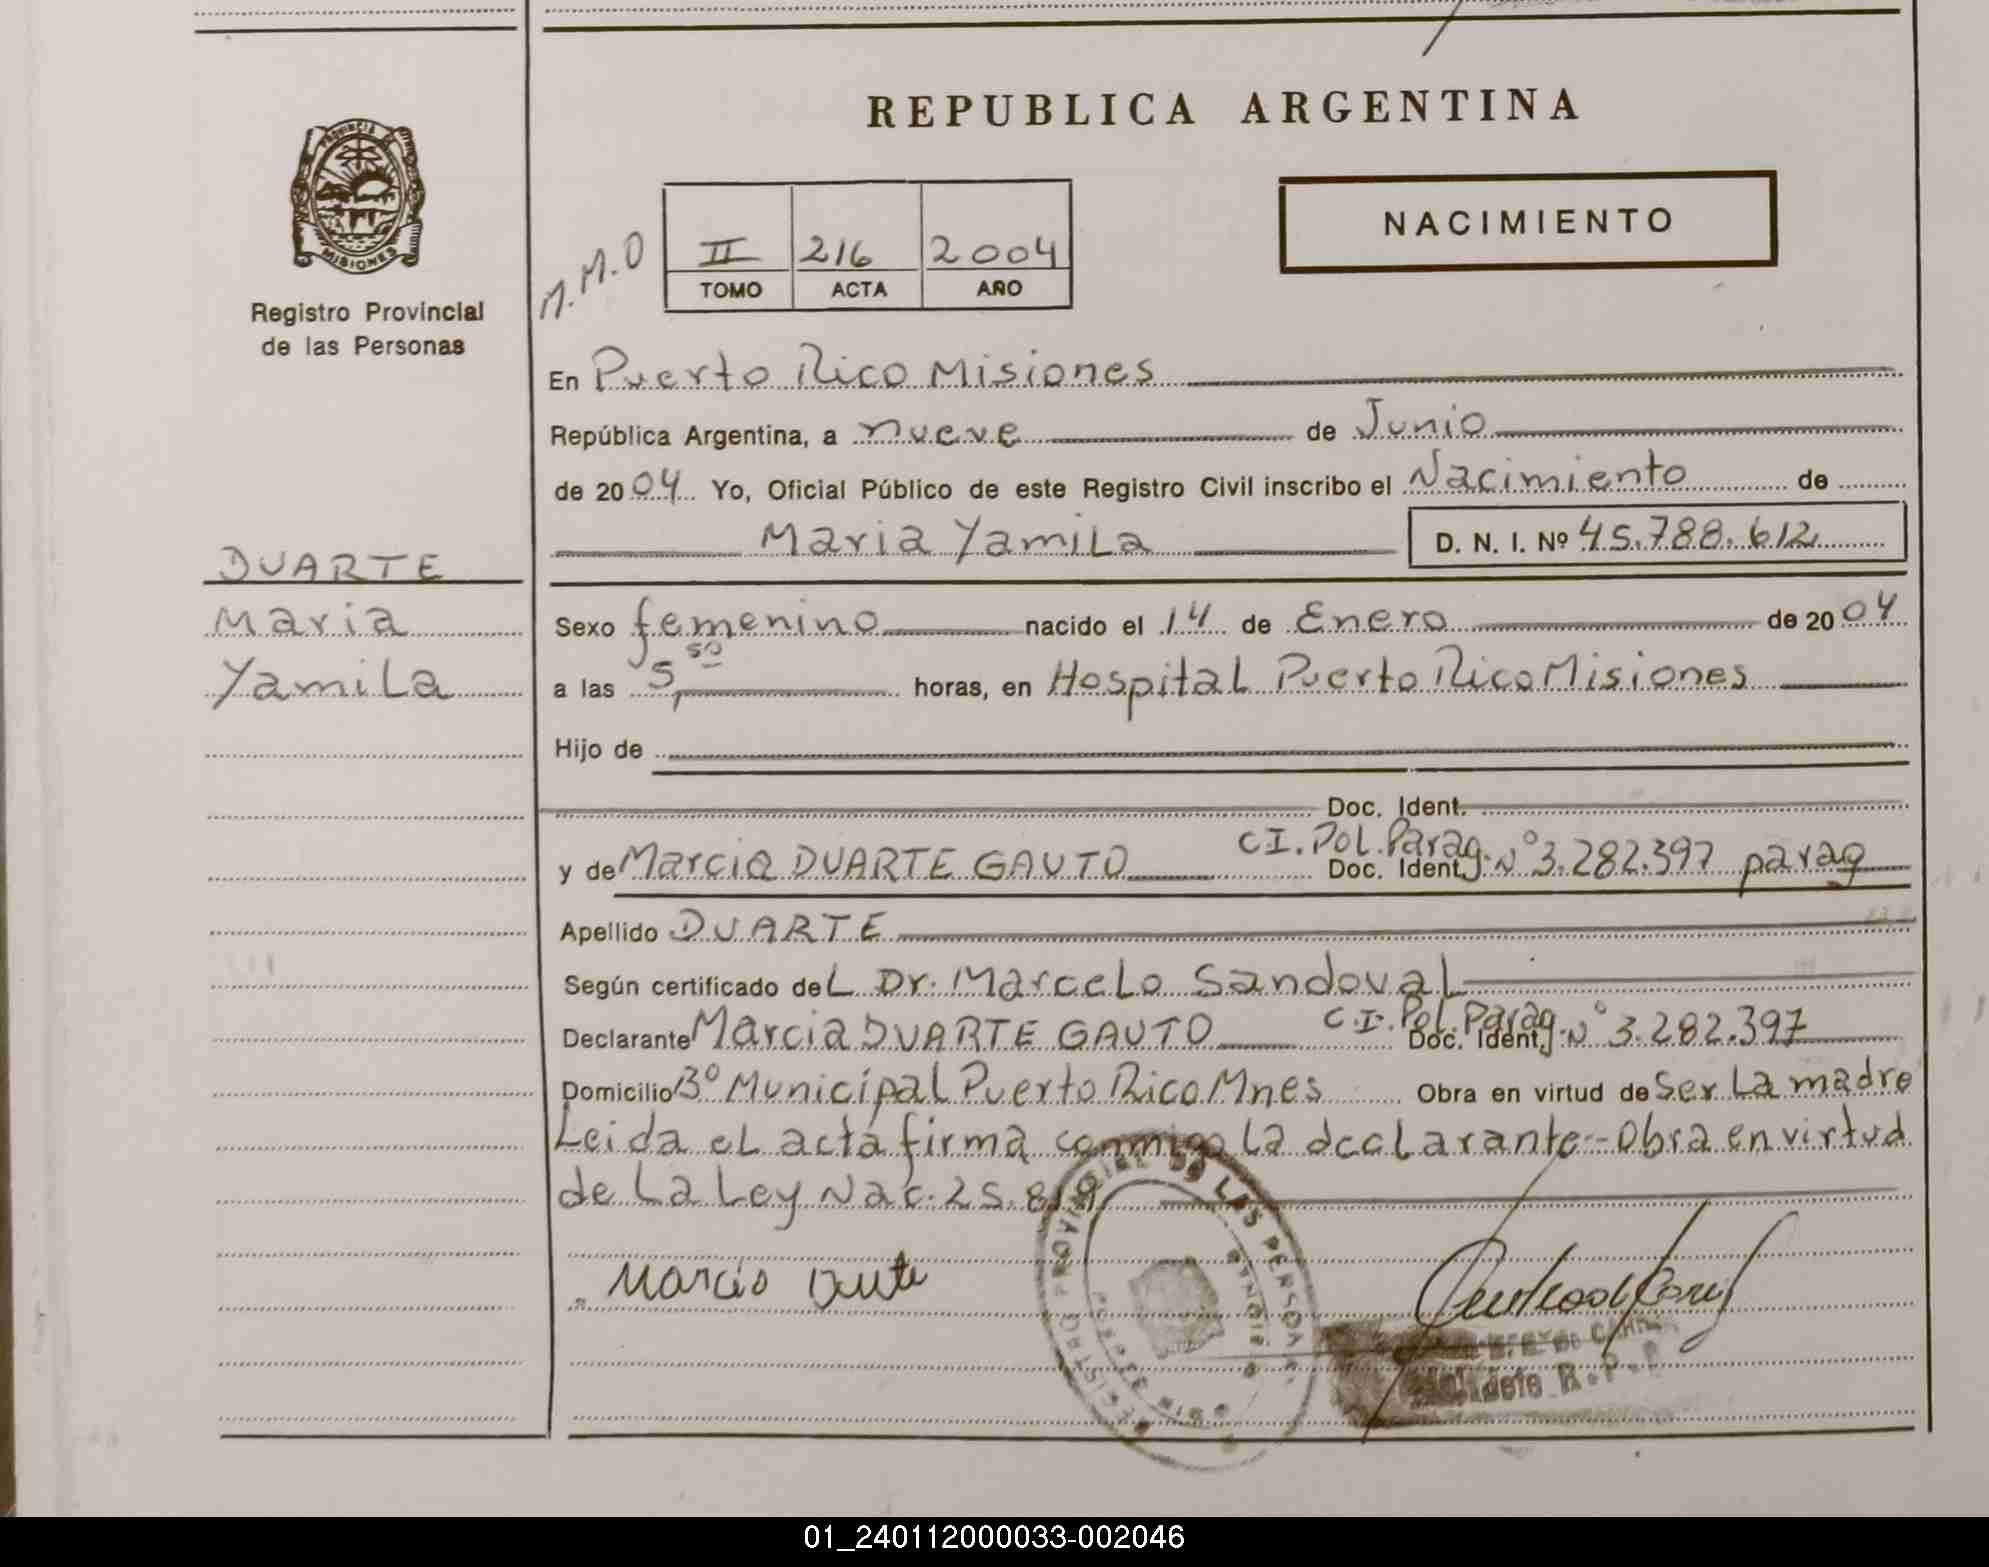 REPUBLICA ARGENTINA
PROVINCIA DE
MISIONES
Registro Provincial
de las Personas
M.M.O
II 216 2004
TOMO ACTA AÑO
NACIMIENTO
En Puerto Rico Misiones
República Argentina, a nueve de Junio
de 2004 Yo, Oficial Público de este Registro Civil inscribo el Nacimiento de
Maria Yamila D. N. I. Nº 45.788.612
DUARTE
Maria
Yamila
Sexo femenino nacido el 14 de Enero de 2004
a las 5,50 horas, en Hospital Puerto Rico Misiones
Hijo de
Doc. Ident.
y de Marcia DUARTE GAUTO Doc. Ident. CI. Pol. Parag. Nº 3.282.397 parag
Apellido DUARTE
Según certificado del Dr. Marcelo Sandoval
Declarante Marcia DUARTE GAUTO Doc. Ident. C.I. Pol. Parag. Nº 3.282.397
Domicilio Bº Municipal Puerto Rico Mnes Obra en virtud de Ser La madre
Leida el acta firma conmigo la declarante-Obra en virtud
de La Ley Nac. 25.819
Marcia Duarte
REGISTRO PROVINCIAL DE LAS PERSONAS
R.P.P
01_240112000033-002046